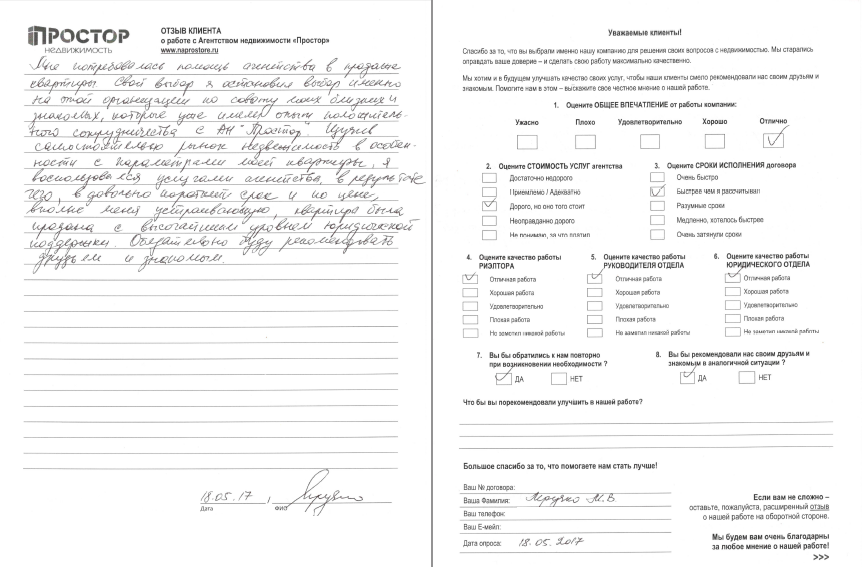 ПРОСТОР
НЕДВИЖИМОСТЬ
ОТЗЫВ КЛИЕНТА
о работе с Агентством недвижимости «Простор»
www.naprostore.ru
Мне потребовалась помощь агентства в продаже
квартиры. Свой выбор я остановил выбор именно
на этой организации по совету моих близких и
знакомых, которые уже имели опыт положитель-
ного сотрудничества с АН "Простор". Изучив
самостоятельно рынок недвижимость в особен-
ности с параметрами моей квартиры, я
воспользовался услугами агентства, в результате
чего, в довольно короткий срок и по цене,
вполне меня устраивающую, квартира была
продана с высочайшим уровнем юридической
поддержки. Обязательно буду рекомендовать
друзьям и знакомым.
18.05.17,
Дата
ФИО
Уважаемые клиенты!
Спасибо за то, что вы выбрали именно нашу компанию для решения своих вопросов с недвижимостью. Мы старались
оправдать ваше доверие – и сделать свою работу максимально качественно.
Мы хотим и в будущем улучшать качество своих услуг, чтобы наши клиенты смело рекомендовали нас своим друзьям и
знакомым. Помогите нам в этом – выскажите свое честное мнение о нашей работе.
1. Оцените ОБЩЕЕ ВПЕЧАТЛЕНИЕ от работы компании:
Ужасно Плохо Удовлетворительно Хорошо Отлично
2. Оцените СТОИМОСТЬ УСЛУГ агентства
Достаточно недорого
Приемлемо / Адекватно
Дорого, но оно того стоит
Неоправданно дорого
Не понимаю, за что платил
3. Оцените СРОКИ ИСПОЛНЕНИЯ договора
Очень быстро
Быстрее чем я рассчитывал
Разумные сроки
Медленно, хотелось быстрее
Очень затянули сроки
4. Оцените качество работы
РИЭЛТОРА
Отличная работа
Хорошая работа
Удовлетворительно
Плохая работа
Не заметил никакой работы
5. Оцените качество работы
РУКОВОДИТЕЛЯ ОТДЕЛА
Отличная работа
Хорошая работа
Удовлетворительно
Плохая работа
Не заметил никакой работы
6. Оцените качество работы
ЮРИДИЧЕСКОГО ОТДЕЛА
Отличная работа
Хорошая работа
Удовлетворительно
Плохая работа
Не заметил никакой работы
7. Вы бы обратились к нам повторно
при возникновении необходимости ?
ДА НЕТ
8. Вы бы рекомендовали нас своим друзьям и
знакомым в аналогичной ситуации ?
ДА НЕТ
Что бы вы порекомендовали улучшить в нашей работе?
Большое спасибо за то, что помогаете нам стать лучше!
Ваш № договора:
Ваша Фамилия: М.В
Ваш телефон:
Ваш E-мейл:
Дата опроса: 18.05.2017
Если вам не сложно –
оставьте, пожалуйста, расширенный отзыв
о нашей работе на оборотной стороне.
Мы будем вам очень благодарны
за любое мнение о нашей работе!
>>>